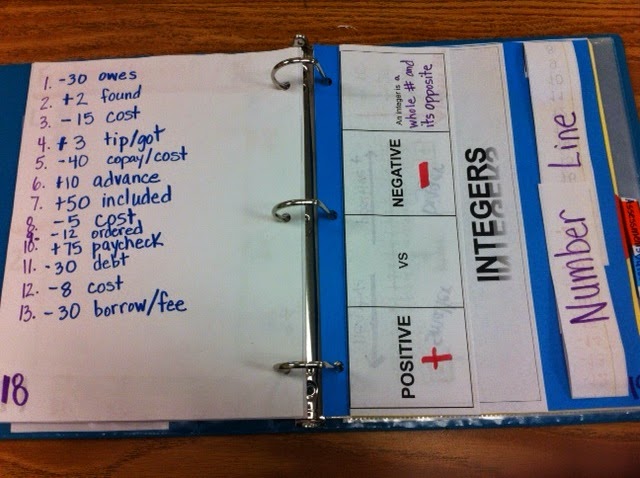 1. -30 owes
2. +2 found
3. -15 cost
4. +3 tip/got
5. -40 copay/cost
6. +10 advance
7. +50 included
8. -5 cost
9. -12 ordered
10. +75 paycheck
11. -30 debt
12. -8 cost
13. -30 borrow/fee
18
POSITIVE VS NEGATIVE
+ -
An integer is a
whole # and
its opposite
INTEGERS
Number Line